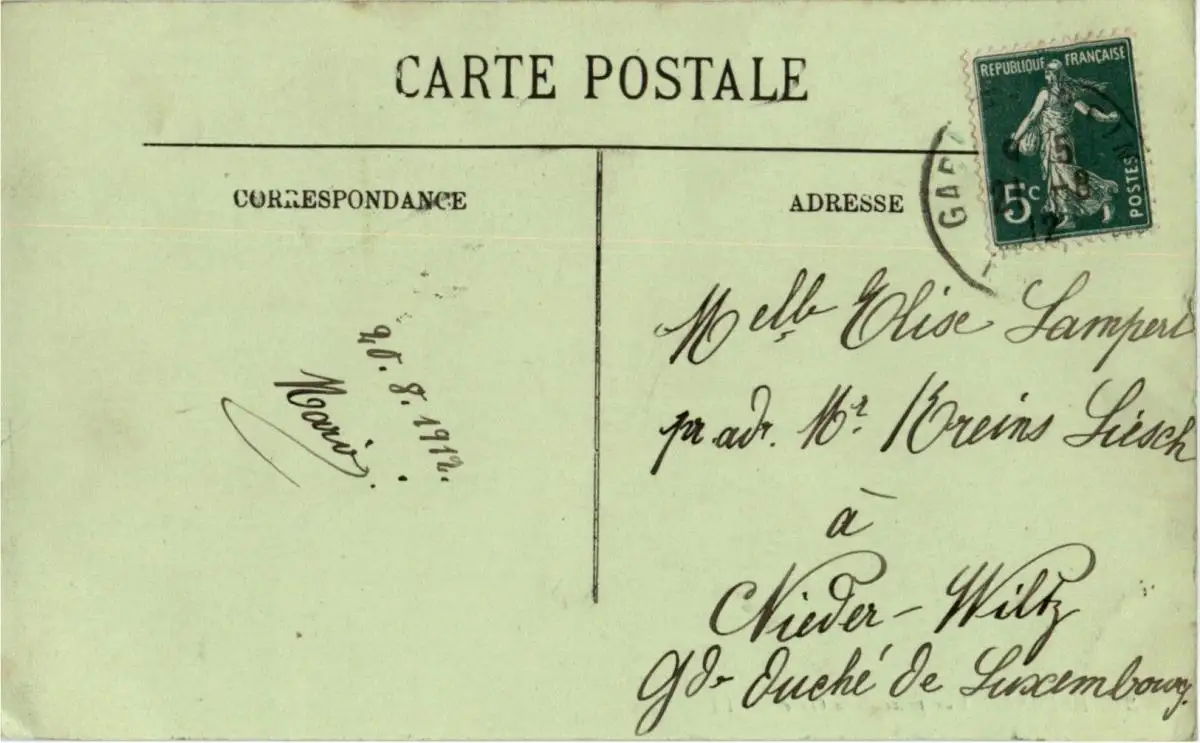 CARTE POSTALE
REPUBLIQUE FRANÇAISE
POSTES
5c
GAR
15
21 -8
12
CORRESPONDANCE
ADRESSE
20. 8. 1912.
Mario.
Melle Elise Lampert
pr adr. Mr Kreins Liesch
à
Nieder-Wiltz
Gd- Duché de Luxembourg.